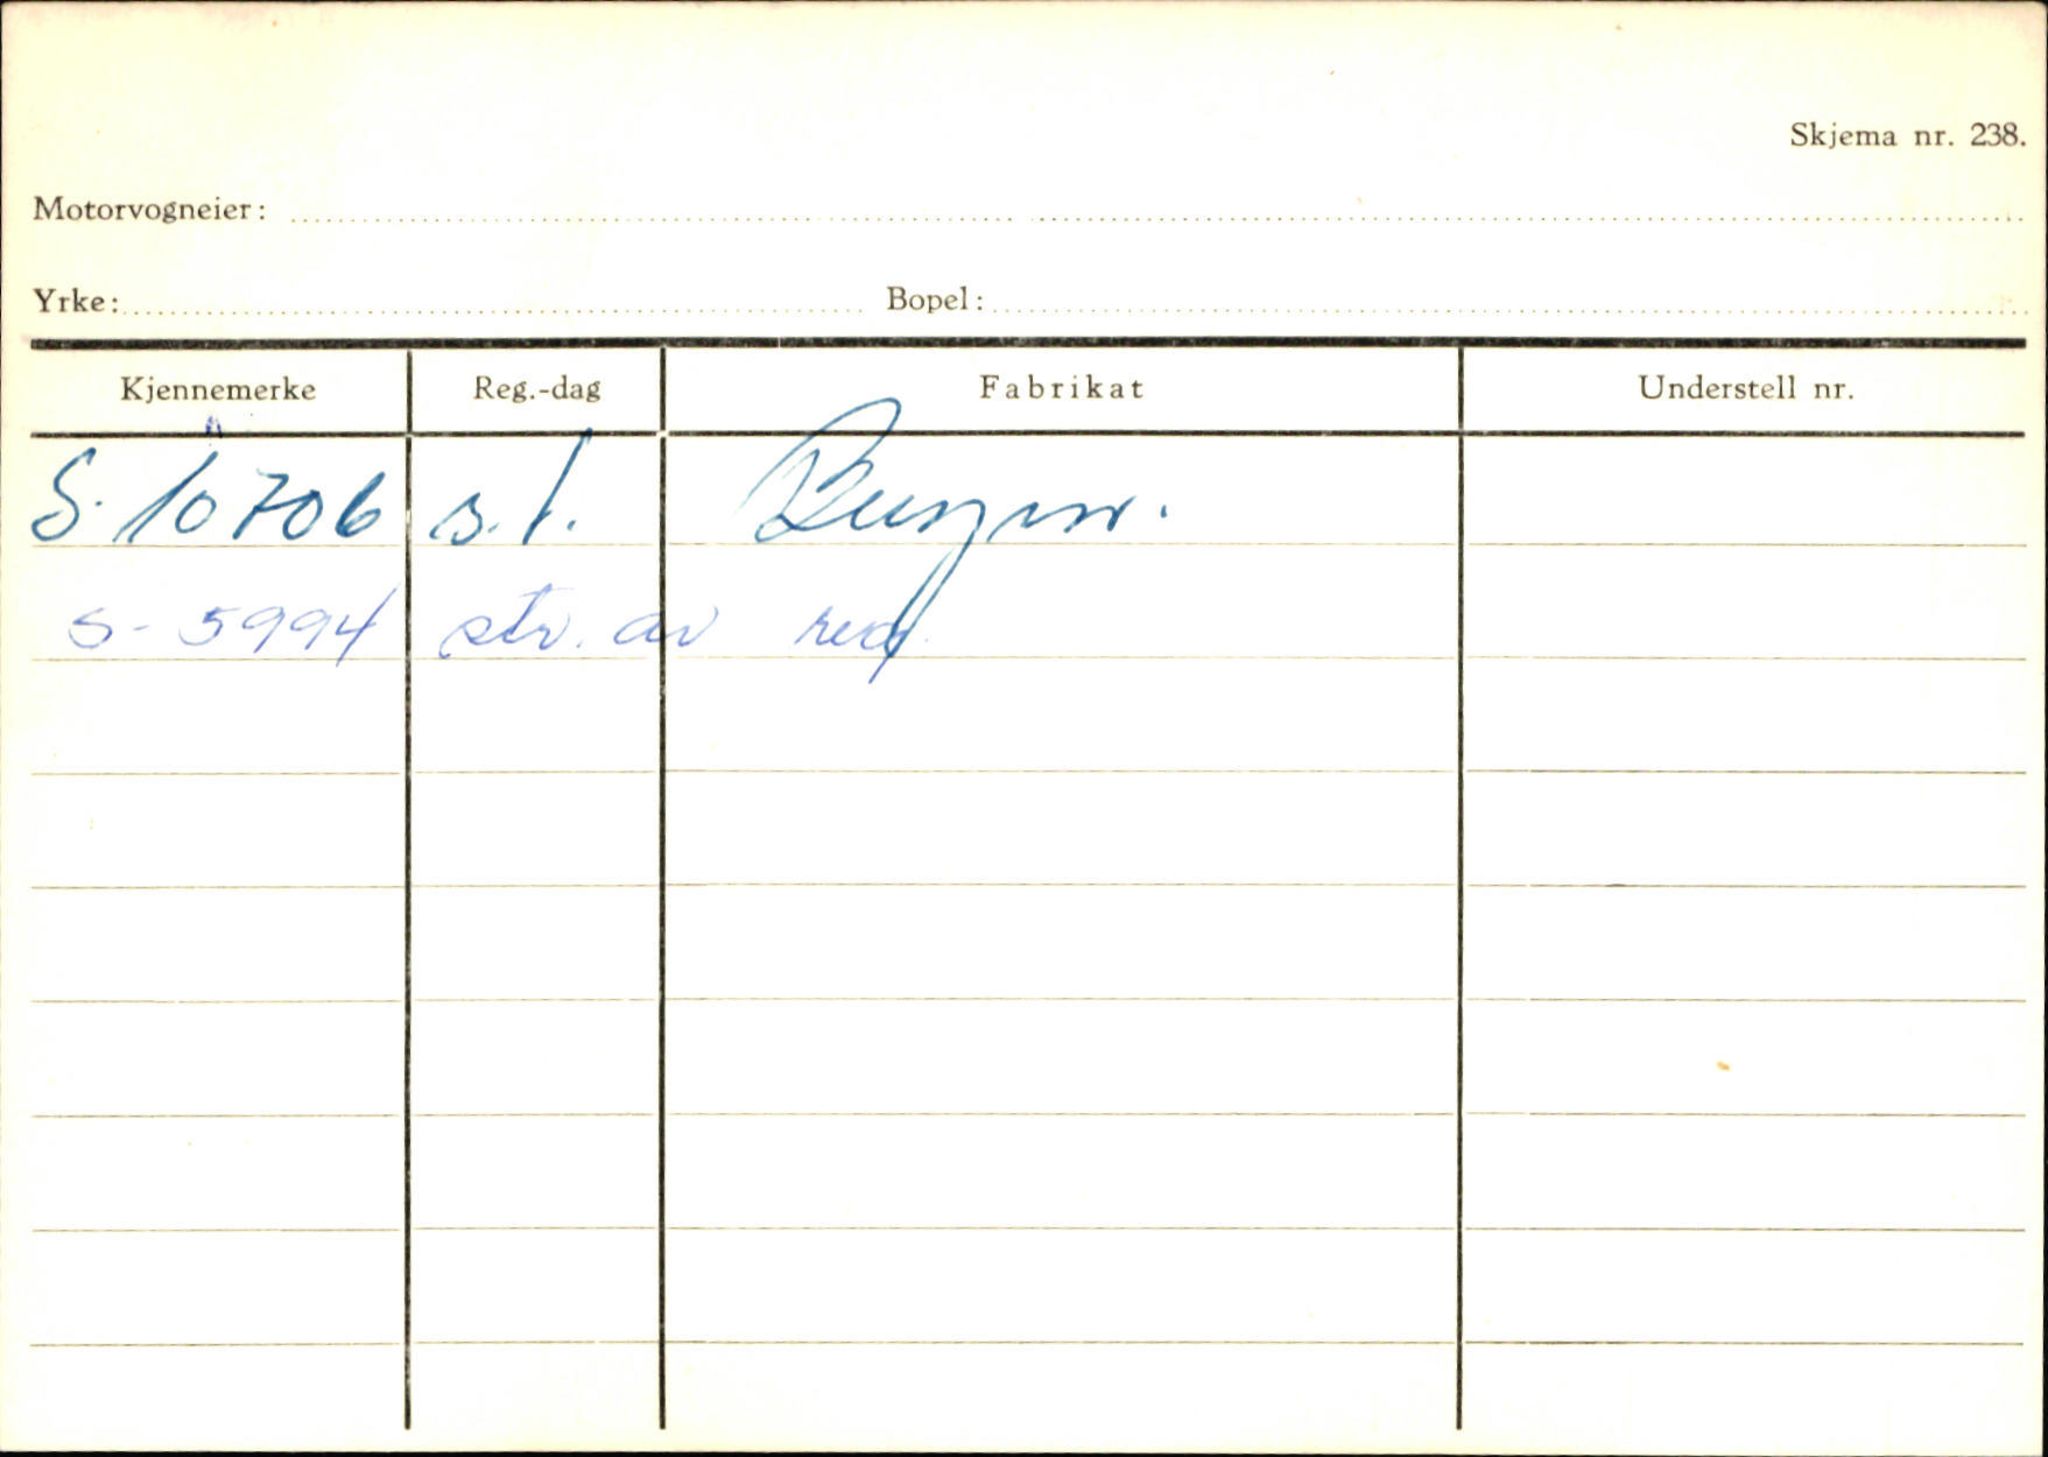 Skjema nr. 238.
Motorvogneier:
Yrke: Bopel:
Kjennemerke Reg.-dag Fabrikat Understell nr.
S. 10706 s.f.
S- 5994 str. av reg.